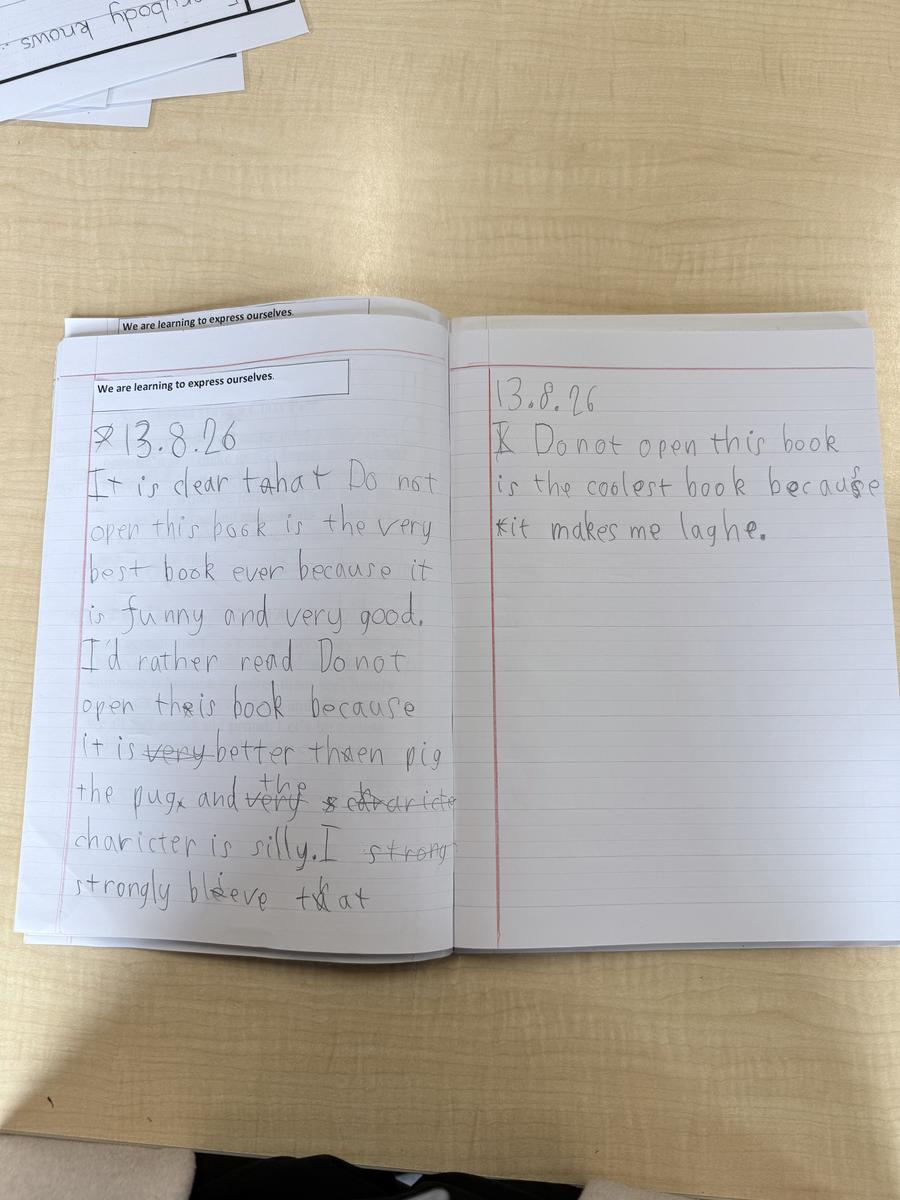 erybody knows...
We are learning to express ourselves.
We are learning to express ourselves.
13.8.26
It is clear that Do not
open this book is the very
best book ever because it
is funny and very good.
I'd rather read Do not
open this book because
it is very better then pig
the pug and very the s charicte
charicter is silly. I strong
strongly bleeve that
13.8.26
I Do not open this book
is the coolest book because
it makes me laghe.